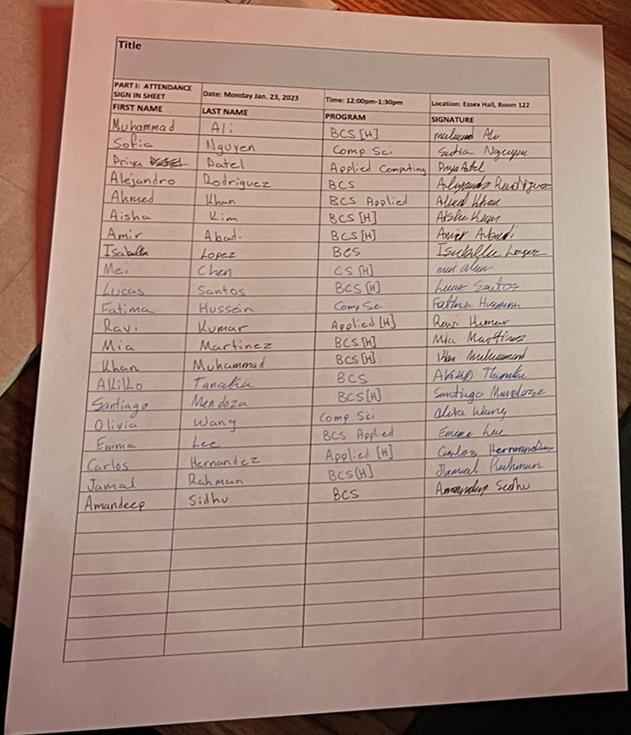 Title
PART I: ATTENDANCE SIGN IN SHEET Date: Monday Jan. 23, 2023 Time: 12:00pm-1:30pm Location: Essex Hall, Room 122
FIRST NAME LAST NAME PROGRAM SIGNATURE
Muhammad Ali BCS [H] Ali
Sofia Nguyen Comp Sci Sofia Nguyen
Priya Patel Applied Computing Priya Patel
Alejandro Rodriguez BCS Rodriguez
Ahmed Khan BCS Applied Khan
Aisha Kim BCS [H] Aisha Kim
Amir Abadi BCS [H] Amir Abadi
Isabella Lopez BCS Isabella Lopez
Mei Chen CS [H]
Lucas Santos BCS [H] Lucas Santos
Fatima Hussein Comp Sci Fatima
Ravi Kumar Applied [H] Ravi Kumar
Mia Martinez BCS [H] Mia Martinez
Khan Muhammad BCS [H] Khan
Akiko Tanaka BCS
Santiago Mendoza BCS [H] Santiago
Olivia Wang Comp Sci Wang
Emma Lee BCS Applied Emma Lee
Carlos Hernandez Applied [H] Carlos
Jamal Rahman BCS [H]
Amandeep Sidhu BCS Sidhu